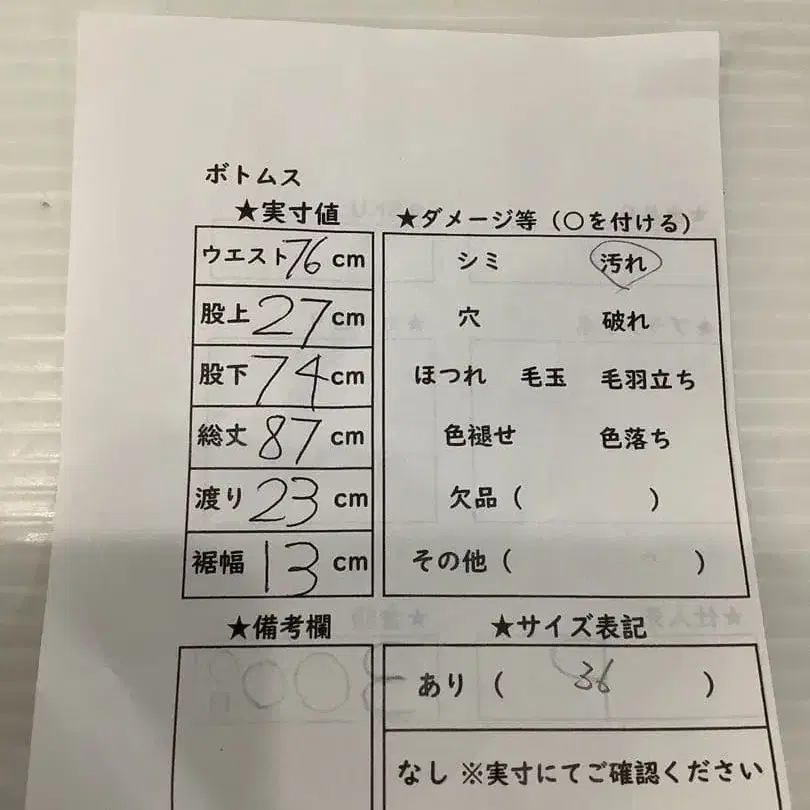 ボトムス
★実寸値
ウエスト 76 cm
股上 27 cm
股下 74 cm
総丈 87 cm
渡り 23 cm
裾幅 13 cm
★ダメージ等（〇を付ける）
シミ 汚れ
穴 破れ
ほつれ 毛玉 毛羽立ち
色褪せ 色落ち
欠品（ ）
その他（ ）
★備考欄
★サイズ表記
あり（ 36 ）
なし ※実寸にてご確認ください